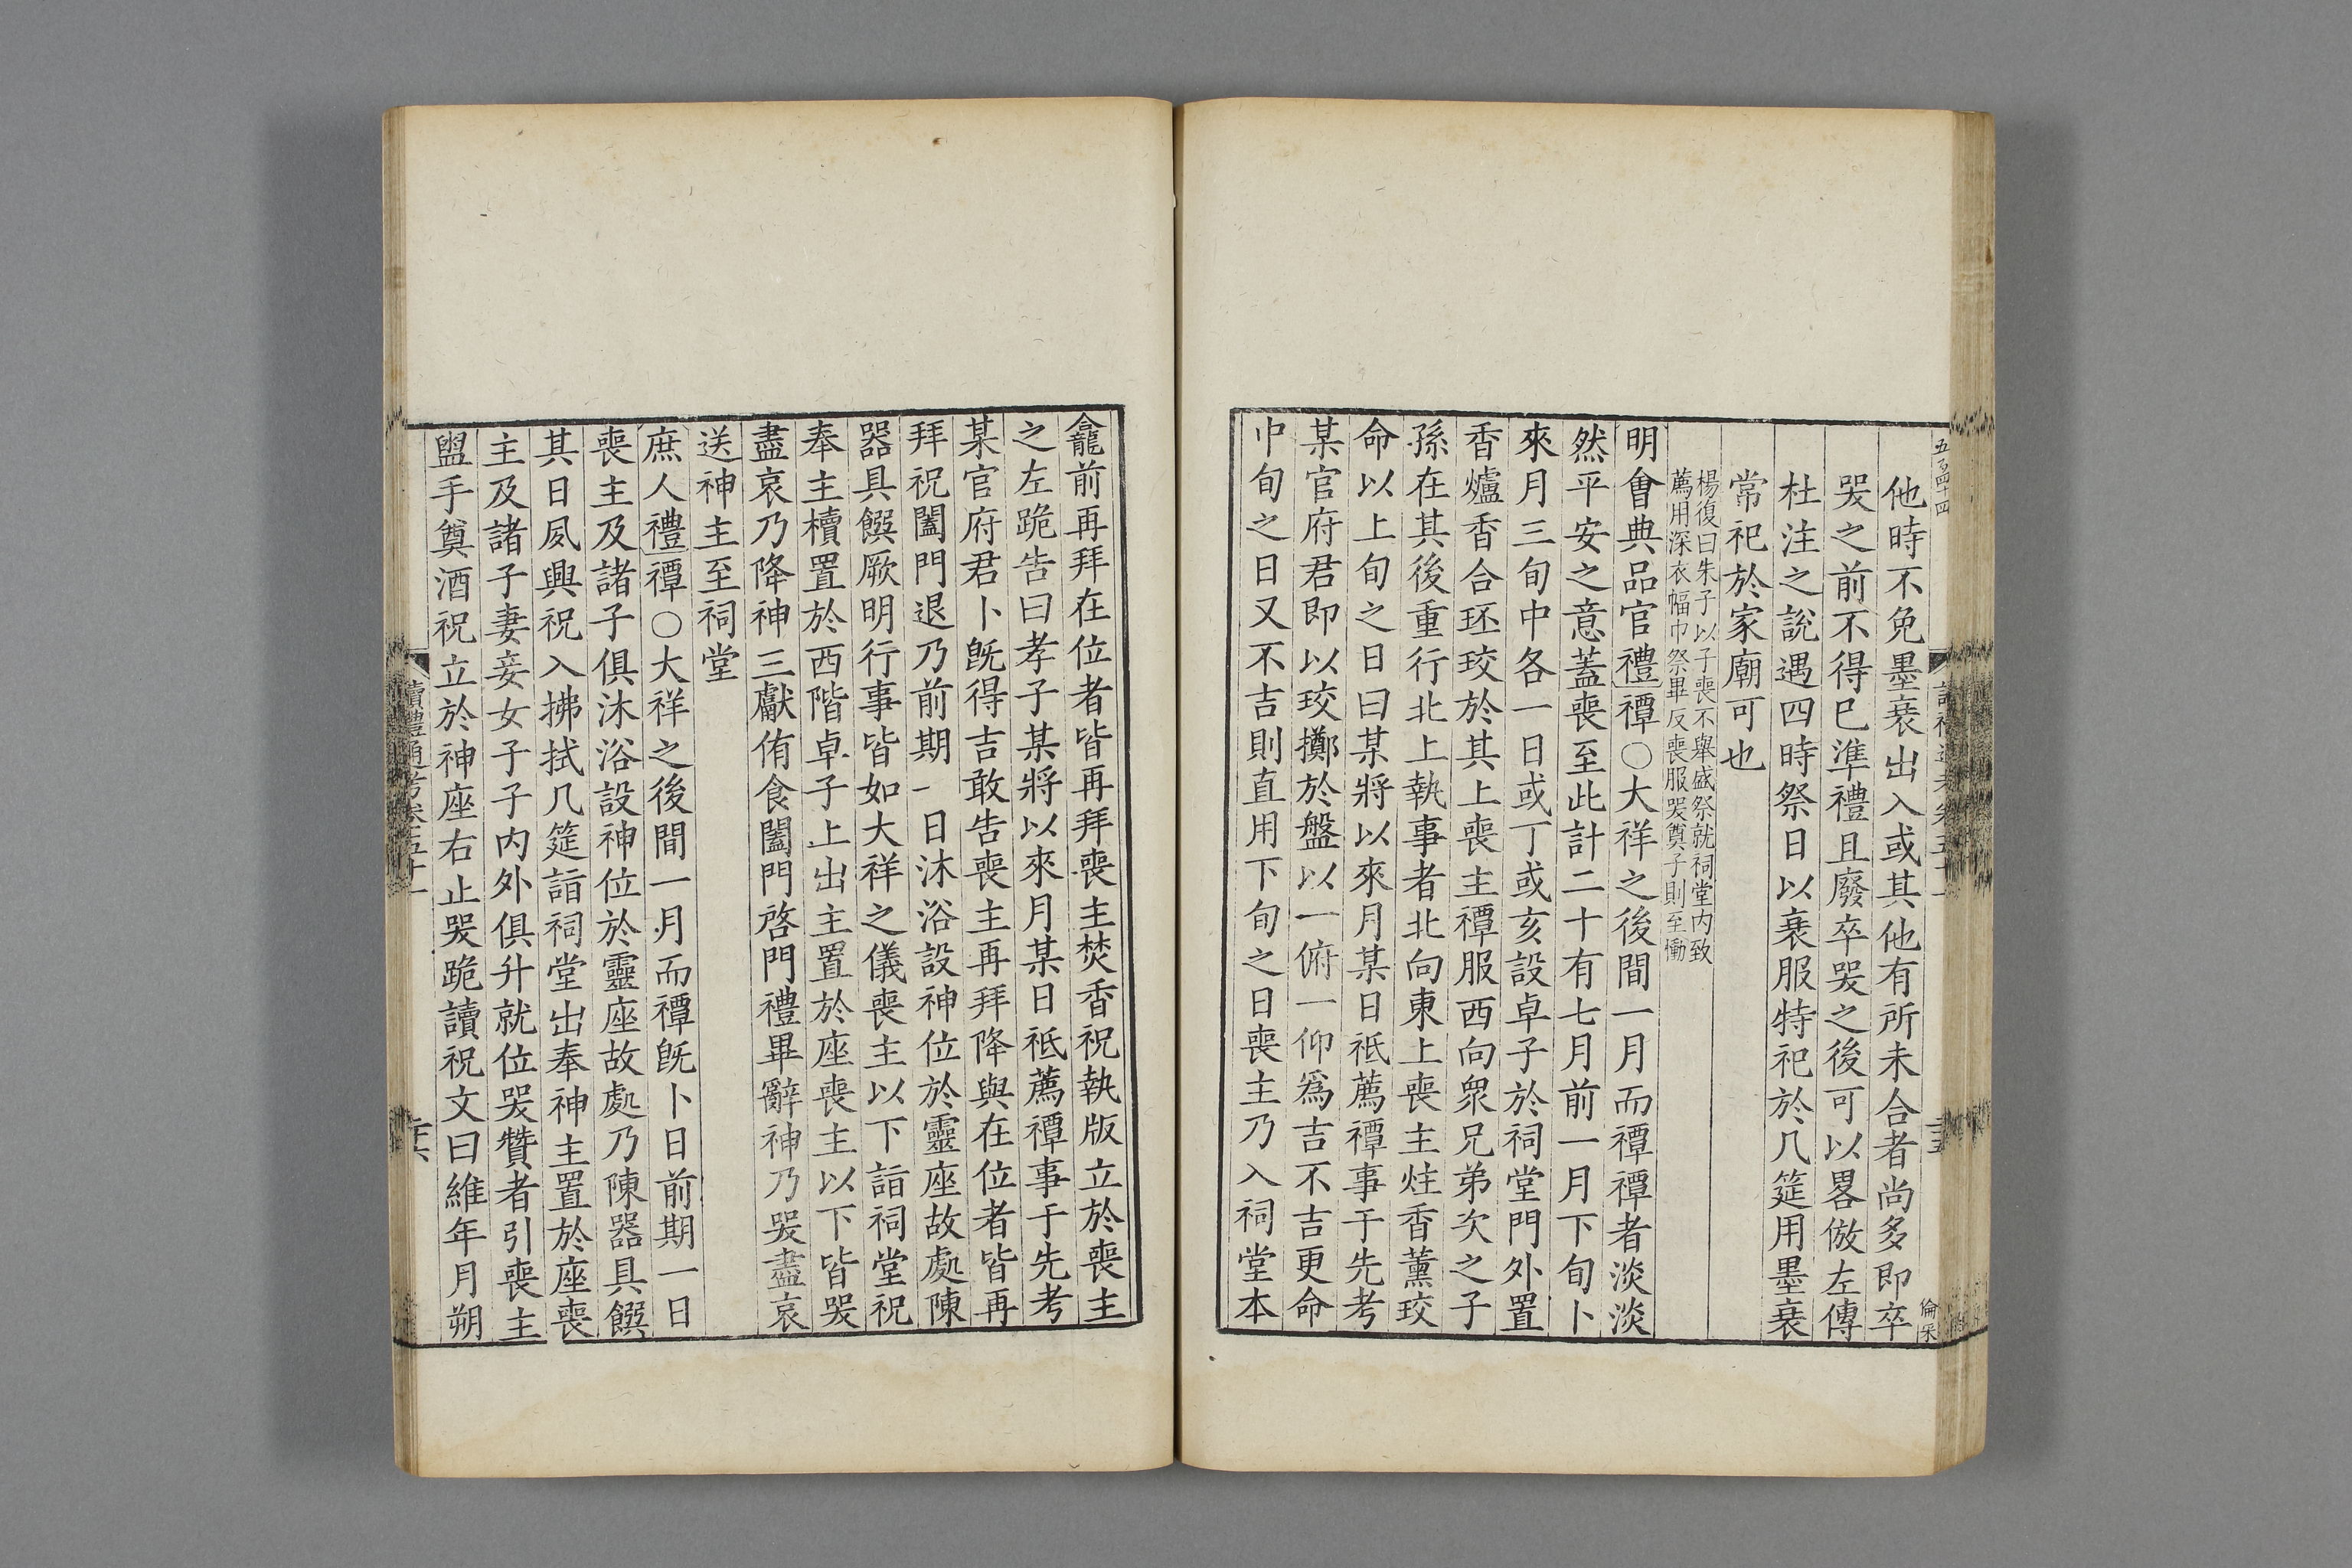 他時不免墨衰出入或其他有所未合者尚多即卒
哭之前不得已準禮且廢卒哭之後可以畧倣左傳
杜注之說遇四時祭日以衰服特祀於几筵用墨衰
常祀於家廟可也
楊復曰朱子以子喪不舉盛祭就祠堂內致
薦用深衣幅巾祭畢反喪服哭奠子則至慟
明會典品官禮禫○大祥之後間一月而禫禫者淡淡
然平安之意蓋喪至此計二十有七月前一月下旬卜
來月三旬中各一日或丁或亥設卓子於祠堂門外置
香爐香合珓珓於其上喪主禫服西向眾兄弟次之子
孫在其後重行北上執事者北向東上喪主炷香薰珓
命以上旬之日曰某將以來月某日祗薦禫事于先考
某官府君即以珓擲於盤以一俯一仰爲吉不吉更命
中旬之日又不吉則直用下旬之日喪主乃入祠堂本
龕前再拜在位者皆再拜喪主焚香祝執版立於喪主
之左跪告曰孝子某將以來月某日祗薦禫事于先考
某官府君卜旣得吉敢告喪主再拜降與在位者皆再
拜祝闔門退乃前期一日沐浴設神位於靈座故處陳
器具饌厥明行事皆如大祥之儀喪主以下詣祠堂祝
奉主櫝置於西階卓子上出主置於座喪主以下皆哭
盡哀乃降神三獻侑食闔門啓門禮畢辭神乃哭盡哀
送神主至祠堂
庶人禮禫○大祥之後間一月而禫旣卜日前期一日
喪主及諸子俱沐浴設神位於靈座故處乃陳器具饌
其日夙興祝入拂拭几筵詣祠堂出奉神主置於座喪
主及諸子妻妾女子子內外俱升就位哭贊者引喪主
盥手奠酒祝立於神座右止哭跪讀祝文曰維年月朔